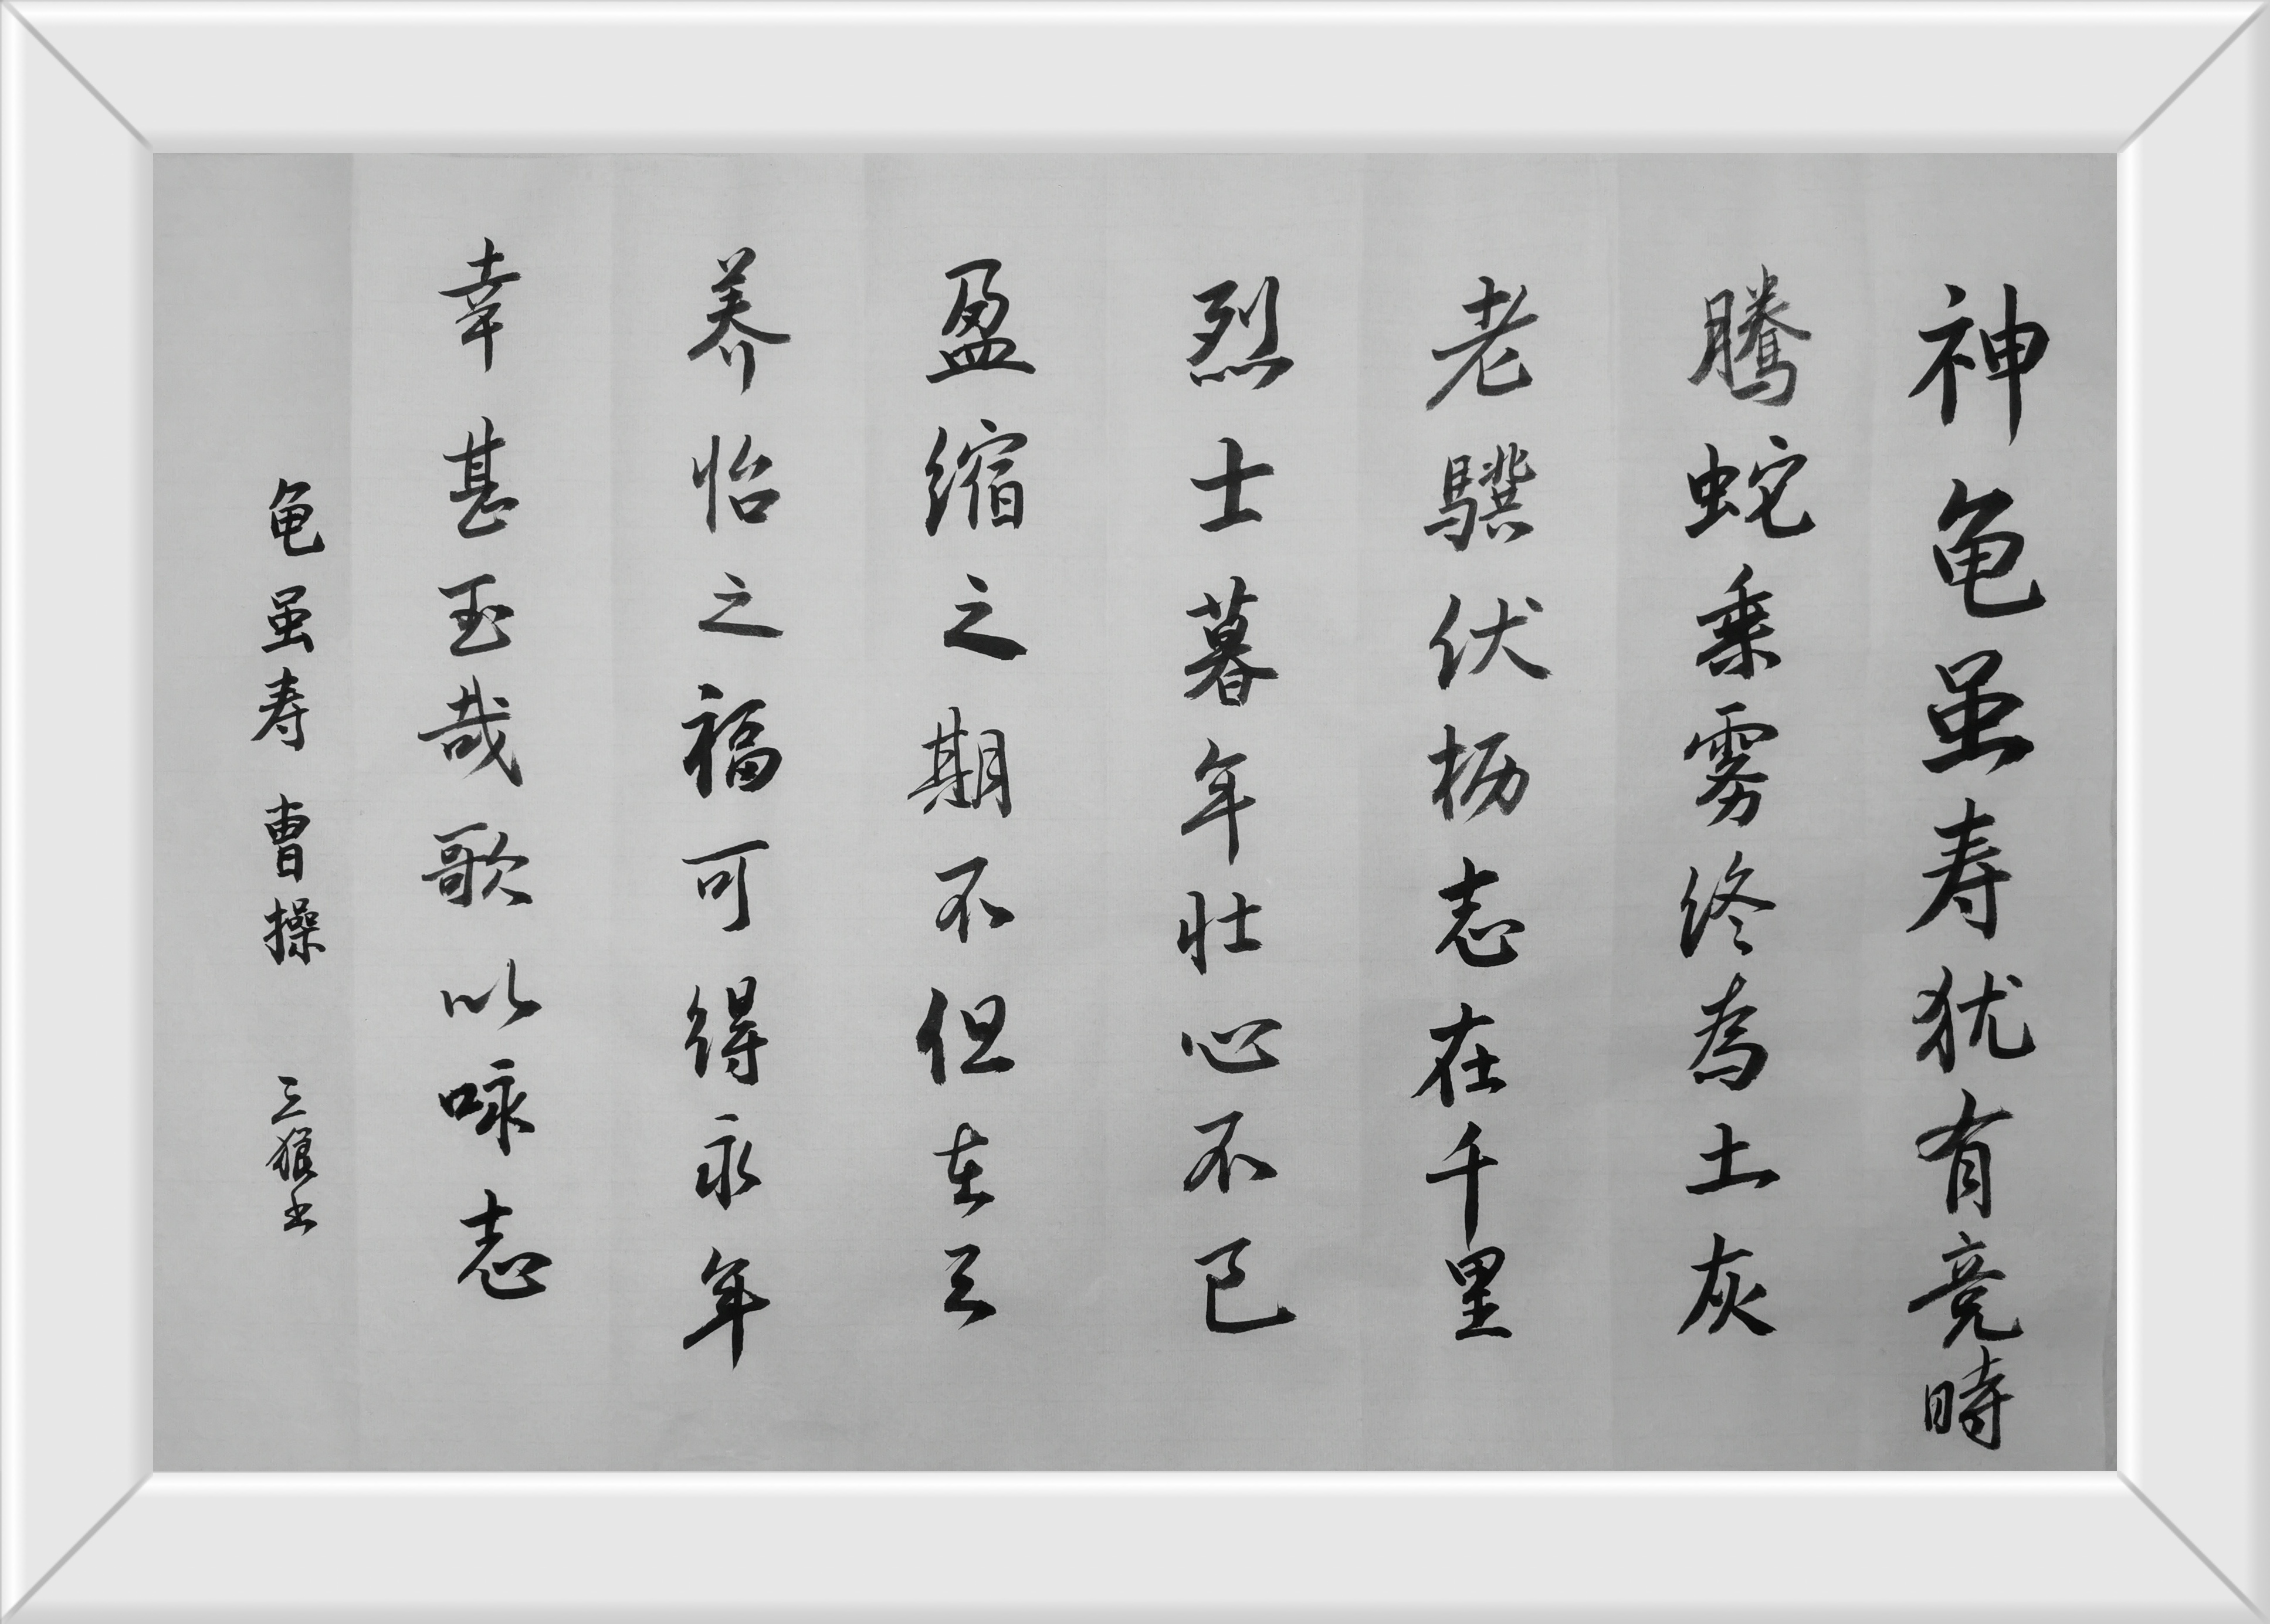 神龟虽寿犹有竞時
騰蛇乘雾终為土灰
老驥伏枥志在千里
烈士暮年壮心不已
盈缩之期不但在天
养怡之福可得永年
幸甚至哉歌以咏志
龟虽寿 曹操 三猴书